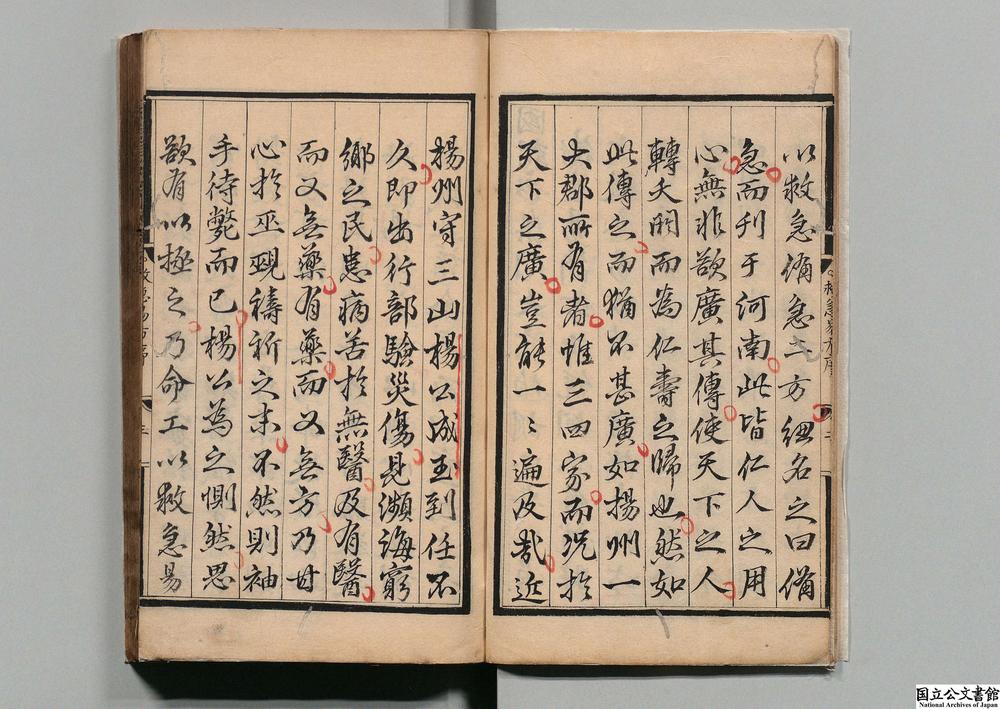 以救急備急二方紐名之曰備
急而刊于河南此皆仁人之用
心無非欲廣其傳使天下之人
轉夭閼而為仁壽之歸也然如
此傳之而猶不甚廣如揚州一
大郡所有者惟三四家而況於
天下之廣豈能一〻遍及哉近
揚州守三山楊公成玉到任不
久即出行部驗災傷見瀕海窮
鄉之民患病苦於無醫及有醫
而又無藥有藥而又無方乃甘
心於巫覡禱祈之末不然則袖
手待斃而已楊公為之惻然思
欲有以拯之乃命工以救急易
国立公文書館
National Archives of Japan